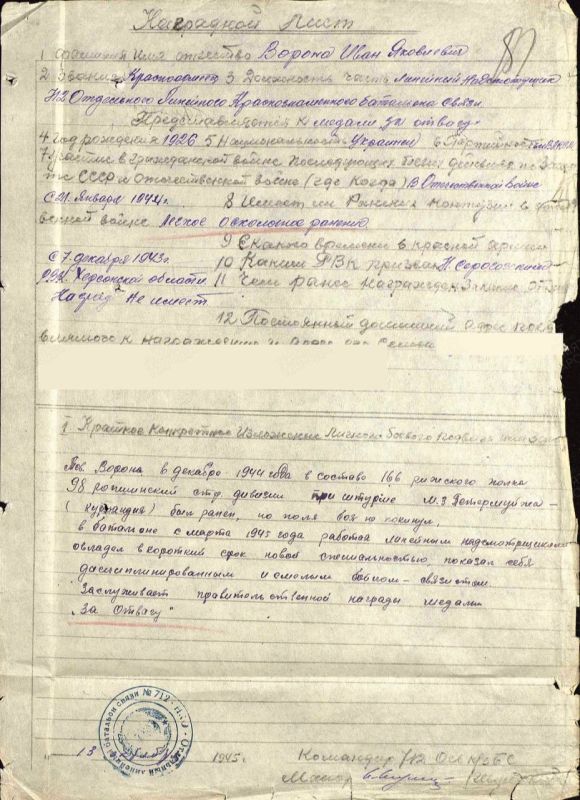 Наградной Лист
1 Фамилия Имя отчество Ворона Иван Яковлевич
2 Звание Красноармеец 3 Должность часть Линейный Надсмотрщик
712 Отдельного Линейного Краснознаменного батальона связи.
Представляется к медали "За отвагу"
4 Год рождения 1926 5 Национальность Украинец 6 Партийность
7 Участие в гражданской войне последующих боевых действиях по
СССР и отечественной войне (где когда) В Отечественной войне
с 21 Января 1944г. 8 Имеет ли Ранения и контузии в
войне Легкое осколочное ранение.
9 С какого времени в красной армии
с 7 декабря 1943г. 10 Каким РВК призван
РВК Херсонской области 11 Чем ранее награжден
Наград Не имеет
12 Постоянный домашний адрес
к награждению и
I Краткое конкретное изложение личного боевого подвига или
Тов Ворона в декабре 1944 года в составе 166 рижского полка
98 ропшинской стр. дивизии при штурме м.
(Курляндия) был ранен, но поля боя не покинул,
в батальоне с марта 1945 года работая линейным надсмотрщиком
овладел в короткий срок новой специальностью, показал себя
дисциплинированным и смелым воином-связистом
Заслуживает правительственной награды медали
"За Отвагу"
Отдельный линейный батальон связи № 712 * НКО *
13 1945г.
Командир 712 ОЛКбС
Майор